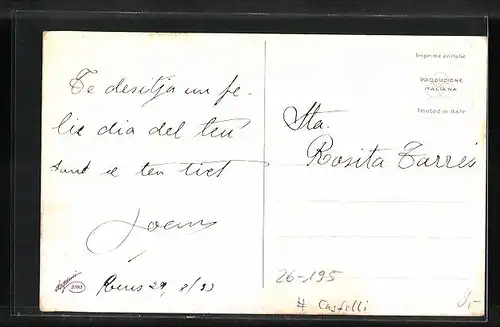 Te desitja un fe-
lis dia del teu
sant e ten tiet
Reus 29, 8/33
2783
Imprimé en Italie
PRODUZIONE
ITALIANA
Printed in Italy
Sta.
Rosita Tarrés
26-195
# Castelli
9,-